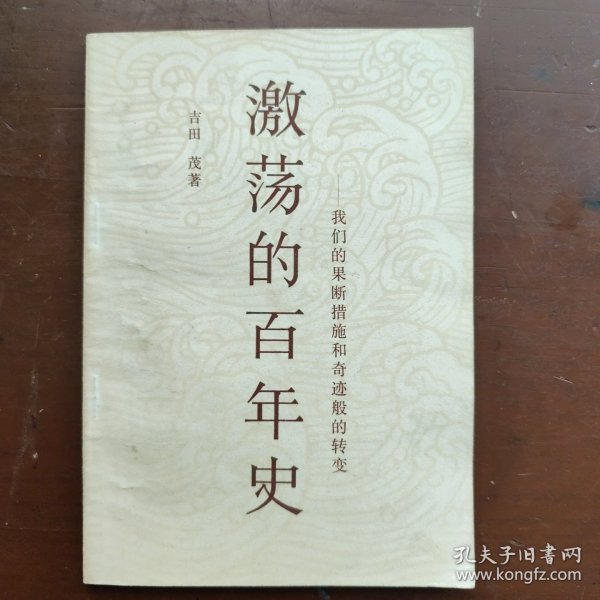 激荡的百年史
——我们的果断措施和奇迹般的转变
吉田 茂著
孔夫子旧书网
www.kongfz.com